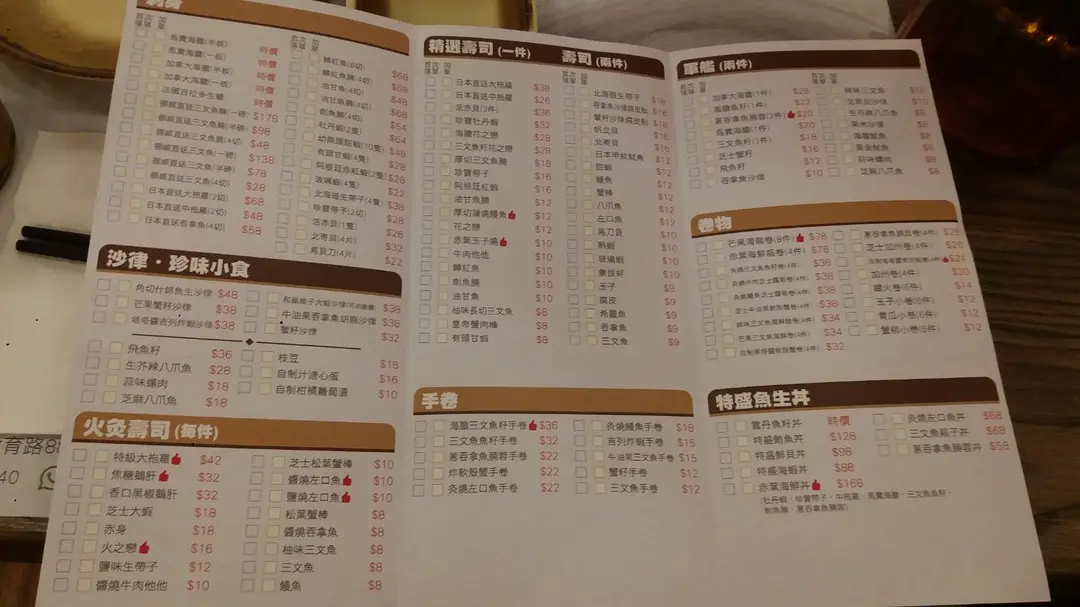 刺身
首次落單 加單
馬糞海膽(半板) 時價
馬糞海膽(一板) 時價
加拿大海膽(半板) 時價
加拿大海膽(一板) 時價
法國吉拉多生蠔 時價
挪威直送三文魚腩(一磅) $178
挪威直送三文魚腩(半磅) $98
挪威直送三文魚腩(4切) $48
挪威直送三文魚(一磅) $138
挪威直送三文魚(半磅) $78
挪威直送三文魚(4切) $28
日本直送大拖羅(2切) $68
日本直送中拖羅(2切) $48
日本直送吞拿魚(4切) $58
首次落單 加單
鱆紅魚(6切) $68
油甘魚(4切) $48
油甘魚腩(4切) $68
劍魚腩(4切) $54
牡丹蝦(2隻) $64
有頭甘蝦(4隻) $28
阿根廷赤紅蝦(2隻)
玻璃蝦(4隻) $22
北海道生帶子(4隻) $38
珍寶帶子(2切) $28
活赤貝(1隻) $26
北寄貝(4片) $32
馬貝刀(4片) $22
沙律·珍味小食
角切什錦魚生沙律 $48
芒果蟹籽沙律 $38
塔塔醬吉列炸蝦沙律 $38
和風柚子大蝦沙律 $38
牛油果吞拿魚胡麻沙律 $38
蟹籽沙律 $32
飛魚籽 $36
生芥辣八爪魚 $28
蒜味螺肉 $18
芝麻八爪魚 $18
枝豆 $18
自制汁溏心蛋 $16
自制柑橘蘿蔔漬 $10
火灸壽司 (每件)
特級大拖羅 $42
焦糖鵝肝 $32
香口黑椒鵝肝 $32
芝士大蝦 $18
赤身 $18
火之戀 $16
鹽味生帶子 $12
醬燒牛肉他他 $10
芝士松葉蟹棒 $10
醬燒左口魚 $10
鹽燒左口魚 $10
松葉蟹棒 $8
醬燒吞拿魚 $8
柚味三文魚 $8
三文魚 $8
鰻魚 $8
精選壽司 (一件)
首次落單 加單
日本直送大拖羅 $38
日本直送中拖羅 $28
活赤貝(3件) $36
珍寶牡丹蝦 $32
海膽花之戀 $28
三文魚籽花之戀 $28
厚切三文魚腩 $18
珍寶帶子 $16
阿根廷紅蝦 $16
油甘魚腩 $12
厚切蒲燒鰻魚 $12
花之戀 $12
赤葉玉子燒 $10
牛肉他他 $10
鱆紅魚 $10
劍魚腩 $10
油甘魚 $10
柚味長切三文魚 $8
皇帝蟹肉棒 $8
有頭甘蝦 $8
壽司 (兩件)
首次落單 加單
北海道生帶子 $18
吞拿魚沙律腐皮 $16
蟹籽沙律腐皮 $16
帆立貝 $16
北寄貝 $16
日本甲魷魚 $12
甜蝦 $12
鰻魚 $12
蟹棒 $12
八爪魚 $12
左口魚 $12
馬刀貝 $10
熟蝦 $10
玻璃蝦 $10
象拔蚌 $10
玉子 $9
腐皮 $9
希靈魚 $9
吞拿魚 $9
三文魚 $9
手卷
海膽三文魚籽手卷 $36
三文魚魚籽手卷 $32
蔥吞拿魚腩蓉手卷 $22
炸軟殼蟹手卷 $22
灸燒左口魚手卷 $22
灸燒鰻魚手卷 $18
吉列炸蝦手卷 $15
牛油果三文魚手卷 $15
蟹籽手卷 $12
三文魚手卷 $12
軍艦 (兩件)
首次落單 加單
加拿大海膽(1件) $28
海膽魚籽(1件) $22
蔥吞拿魚腩蓉(2件) $20
馬糞海膽(1件) $20
三文魚籽(1件) $18
芝士蟹籽 $16
飛魚籽 $12
吞拿魚沙律 $10
辣味三文魚 $10
北寄貝沙律 $10
生芥辣八爪魚 $8
粟米沙律 $8
海膽魷魚 $8
黃金魷魚 $8
蒜味螺肉 $8
芝麻八爪魚 $8
卷物
芒果海膽卷(8件) $78
赤葉海鮮膽卷(4件) $78
$38
$38
$38
$38
$38
$34
芒果三文魚海鮮卷(4件) $34
自制塔塔醬軟殼蟹卷(4件) $32
蔥吞拿魚腩反卷(4件) $26
芝士加州卷(4件) $26
$24
加州卷(4件) $20
鐵火卷(6件) $14
玉子小卷(6件) $12
青瓜小卷(6件) $12
蟹柳小卷(6件) $12
特盛魚生丼
雲丹魚籽丼 時價
特盛鮑魚丼 $128
特盛鮮貝丼 $98
特盛海蝦丼 $88
赤葉海鮮丼 $168
(牡丹蝦、珍寶帶子、中拖羅、馬糞海膽、三文魚魚籽、
劍魚腩、蔥吞拿魚腩蓉)
灸燒左口魚丼 $68
三文魚親子丼 $68
蔥吞拿魚腩蓉丼 $58
育路8
40